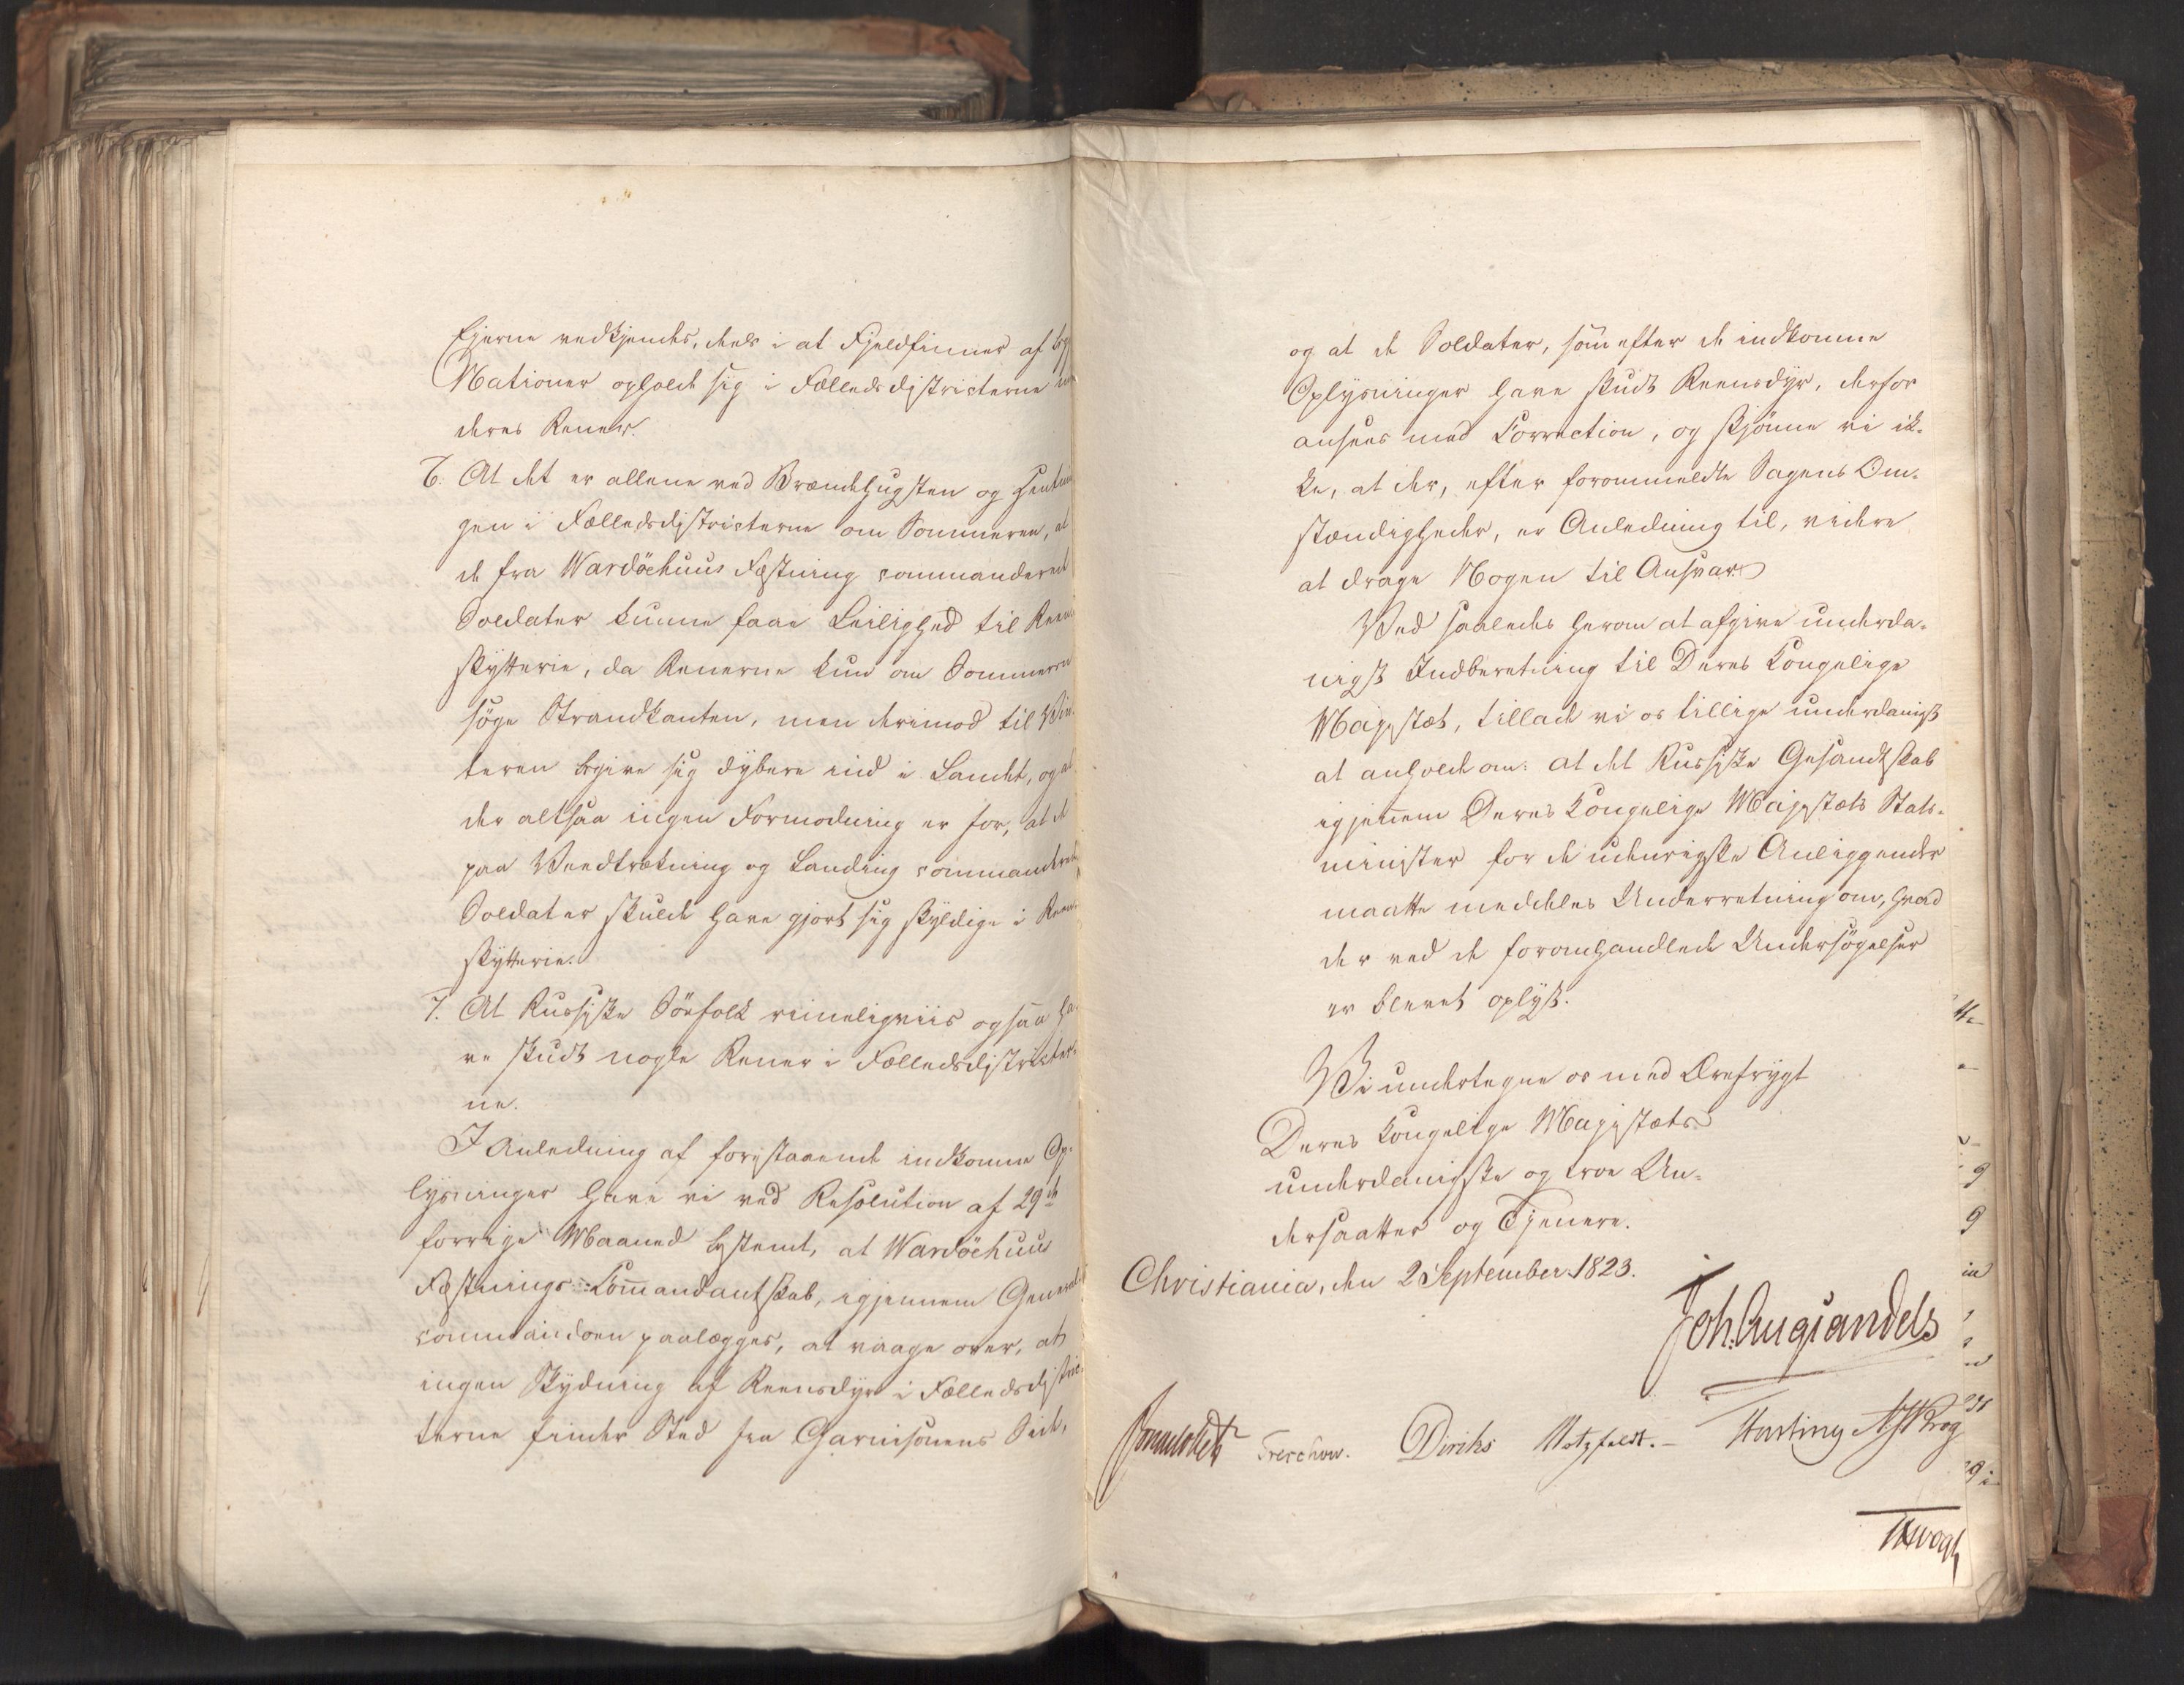 Ejerne vedkjendes, deels i at Fjeldfinner af begge
Nationer opholde sig i Fælledsdistricterne med
deres Rener.
6. At det er allene ved Brændehugsten og Hentnin
gen i Fælledsdistricterne om Sommeren, at
de fra Wardöehuus Fæstning commanderede
Soldater kunne faae Leilighed til Reens
skytterie, da Renerne kun om Sommeren
söge Strandkanten, men derimod til Vin-
teren begive sig dybere ind i Landet, og at
der altsaa ingen Formodning er for, at de
paa Veedtrækning og Landing commanderede
Soldater skulde have gjort sig skyldige i Reens
skytterie.
7. At Russiske Söefolk rimeligviis ogsaa ha-
ve skudt nogle Rener i Fælledsdistricter-
ne.
I Anledning af forestaaende indkomne Op-
lysninger have vi ved Resolution af 29de
forrige Maaned bestemt, at Wardöehuus
Fæstnings-Comandantskab, igjennem General
commandoen paalægges, at vaage over, at
ingen Skydning af Reensdyr i Fælledsdistric-
terne finder Sted fra Garnisonens Side,
og at de Soldater, som efter de indkomne
Oplysninger have skudt Reensdyr, derfor
ansees med Correction, og skjönne vi ik-
ke, at der, efter forommeldte Sagens Om-
stændigheder, er Anledning til, videre
at drage Nogen til Ansvar.
Ved saaledes herom at afgive underda-
nigst Indberetning til Deres Kongelige
Majestæt, tillade vi os tillige underdanigst
at anholde om: at det Russiske Gesandtskab
igjenem Deres Kongelige Majestæts Stats-
minister for de udenrigske Anliggender
maatte meddeles Underretning om, hvad
der ved de foromhandlede Undersögelser
er blevet oplyst.
Vi undertegne os med Ærefrygt
Deres Kongelige Majestæts
underdanigste og troe Un-
dersaatter og Tjenere.
Christiania, den 2 September 1823.
Joh. Aug Sandels
Sommerhielm Treschow. Diriks Motzfeldt. Fasting A J Krog
JHVogt